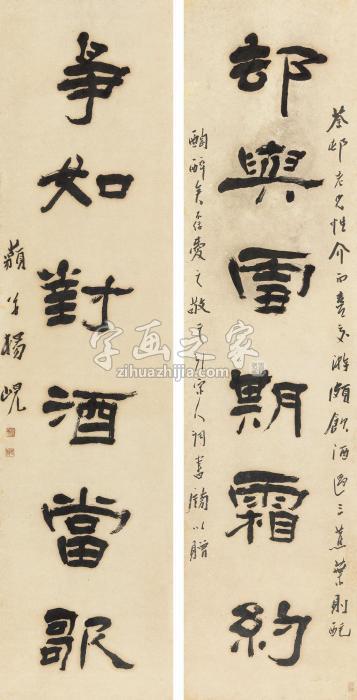 却與雪期霜約
荃邨老兄性介而喜交游頗飲酒過三蕉葉則酕
醄醉矣愛之敬之引宋人詞書以贈
爭如對酒當歌
藐翁楊峴
字画之家
www.zihuazhijia.com